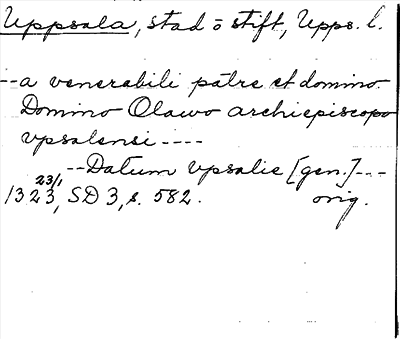 Uppsala, stad o stift, Upps. l.
--a venerabili patre et domino.
Domino Olawo archiepiscopo
vpsalensi ----
--Datum vpsalie [gen.]---
23/1
1323, SD 3, s. 582. orig.